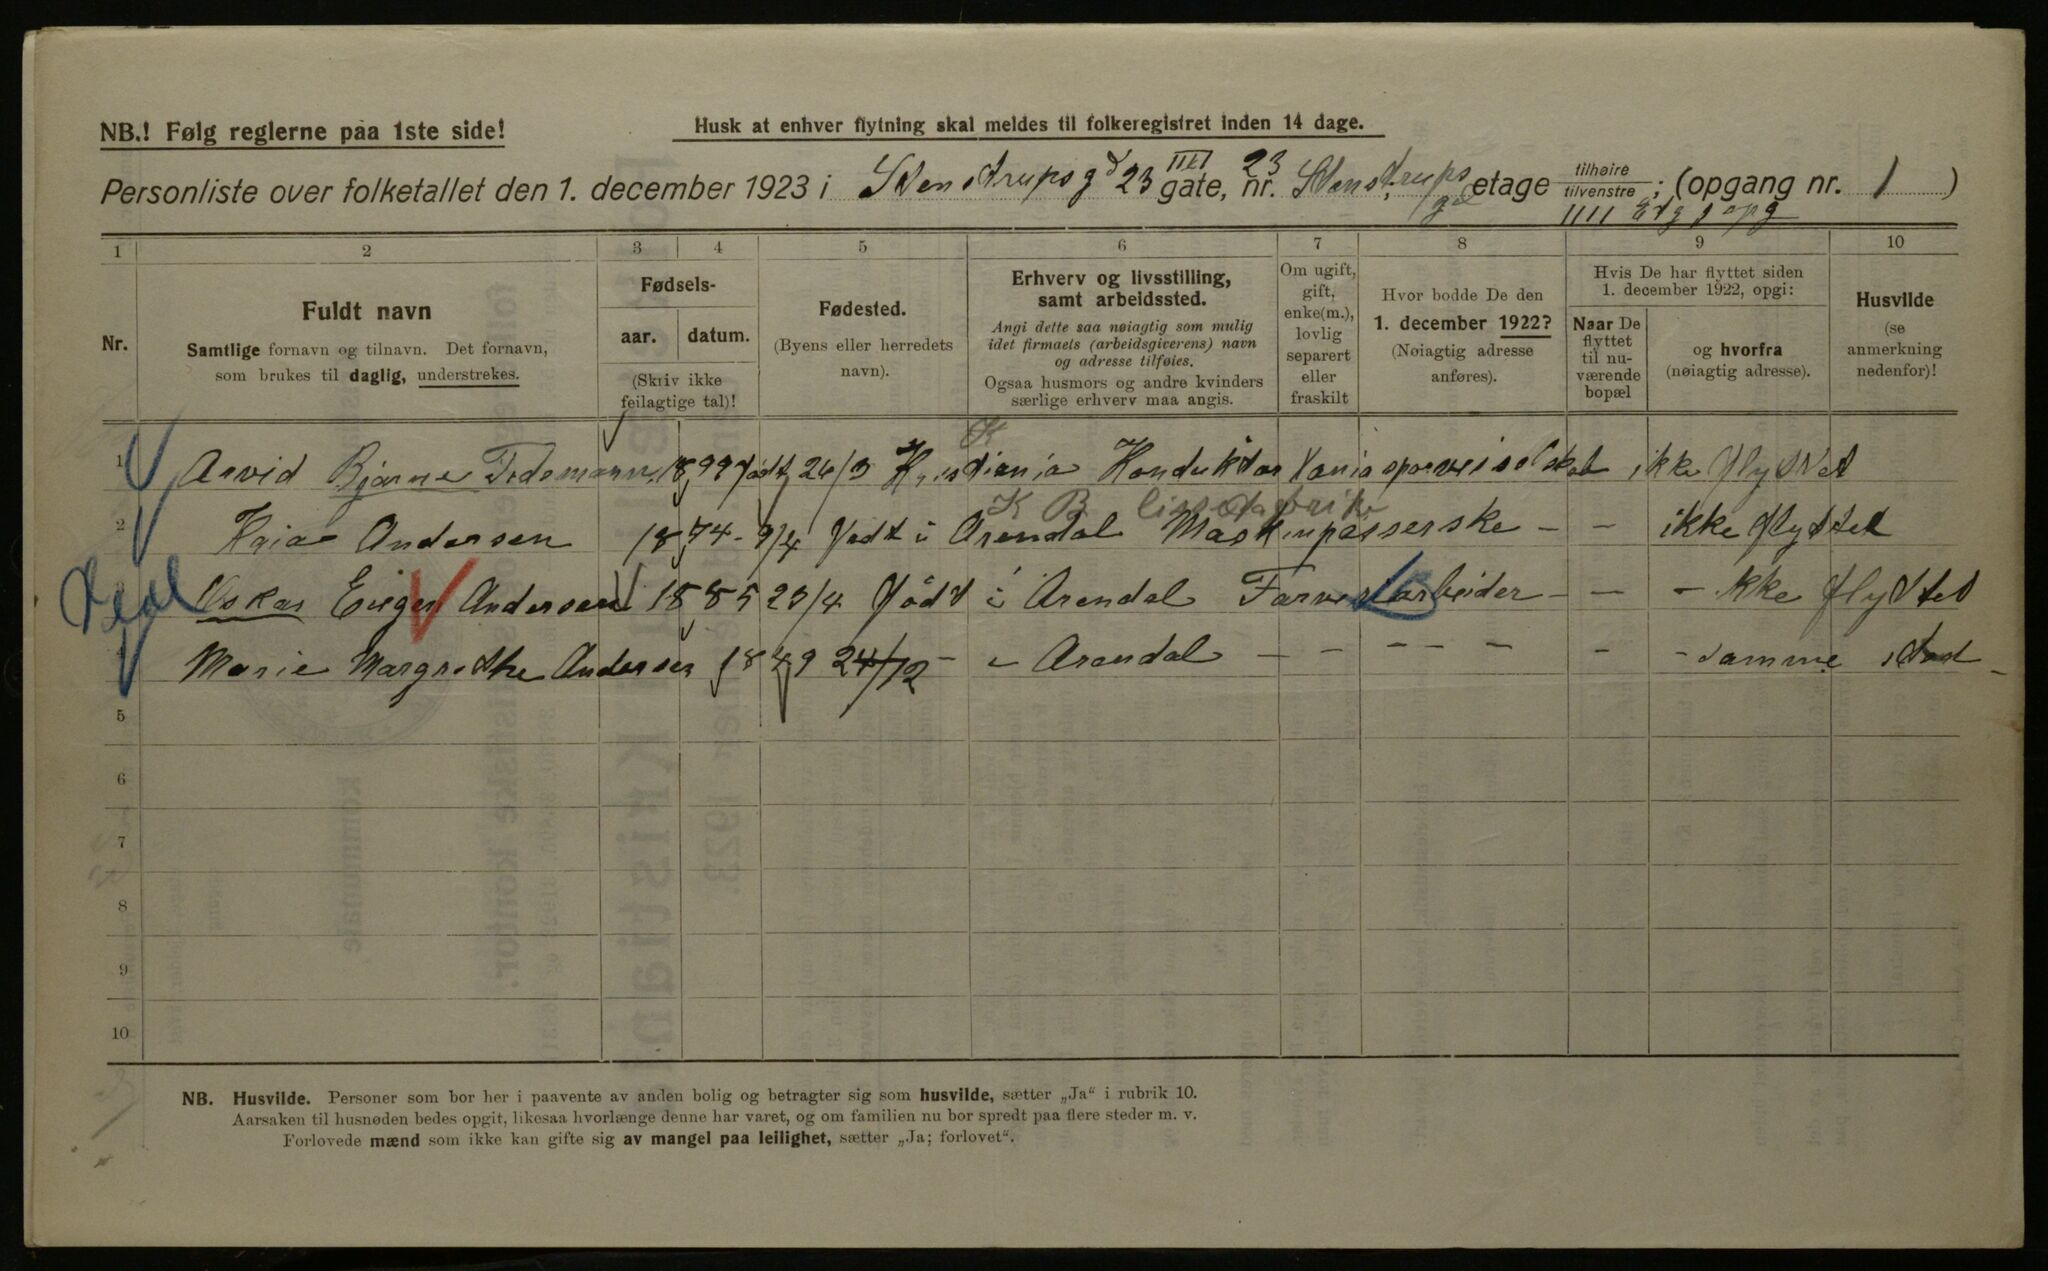 NB.! Følg reglerne paa 1ste side!
Husk at enhver flytning skal meldes til folkeregistret inden 14 dage.
Personliste over folketallet den 1. december 1923 i Stenstrups gd 23 III gate, nr. 23 Stenstrups gd etage tilhøire tilvenstre; (opgang nr. 1)
IIII Etg 1 opg
1 2 3 4 5 6 7 8 9 10
Nr.
Fuldt navn
Samtlige fornavn og tilnavn. Det fornavn,
som brukes til daglig, understrekes.
Fødsels-
aar. datum.
(Skriv ikke
feilagtige tal)!
Fødested.
(Byens eller herredets
navn).
Erhverv og livsstilling,
samt arbeidssted.
Angi dette saa nøiagtig som mulig
idet firmaets (arbeidsgiverens) navn
og adresse tilføies.
Ogsaa husmors og andre kvinders
særlige erhverv maa angis.
Om ugift,
gift,
enke(m.),
lovlig
separert
eller
fraskilt
Hvor bodde De den
1. december 1922?
(Nøiagtig adresse
anføres).
Hvis De har flyttet siden
1. december 1922, opgi:
Naar De
flyttet
til nu-
værende
bopæl
og hvorfra
(nøiagtig adresse).
Husvilde
(se
anmerkning
nedenfor)!
K
1 Arvid Bjarne Tidemann 1899 født 26/3 Kristiania Konduktør Kania sporveiselskab ikke flyttet
K B
2 Kaia Andersen 1874 - 9/4 Født i Arendal Maskinpasserske - - ikke flyttet
3 Oskar Andersen 1885 23/4 Født i Arendal Farveriarbeider - - - ikke flyttet
4 Marie Margrethe Andersen 1849 24/12 - i Arendal - - - - - - - samme sted -
5
6
7
8
9
10
NB. Husvilde. Personer som bor her i paavente av anden bolig og betragter sig som husvilde, sætter „Ja“ i rubrik 10.
Aarsaken til husnøden bedes opgit, likesaa hvorlænge denne har varet, og om familien nu bor spredt paa flere steder m. v.
Forlovede mænd som ikke kan gifte sig av mangel paa leilighet, sætter „Ja; forlovet“.